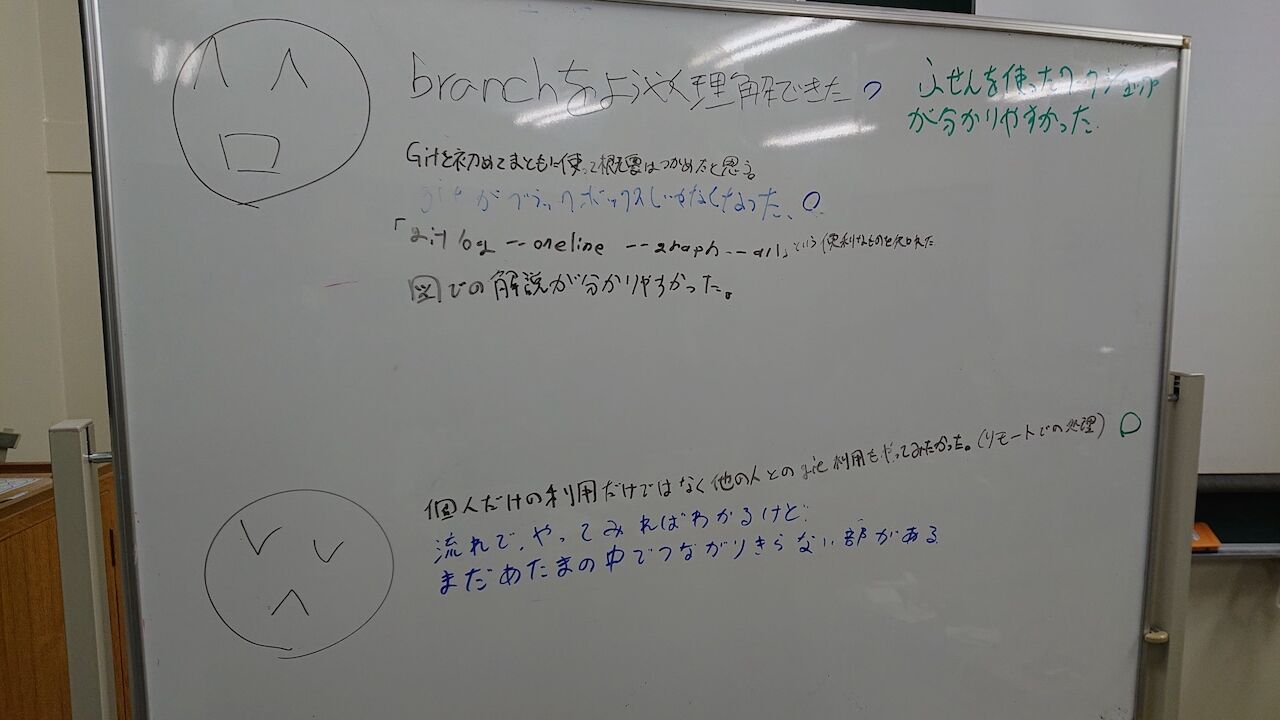 branchをようやく理解できた
ふせんを使ったワークショップ
が分かりやすかった
Gitを初めてまともに使って概要はつかめたと思う
gitがブラックボックスじゃなくなった、
「git log --oneline --graph --all」という便利なものを知れた
図での解説が分かりやすかった。
個人だけの利用だけではなく他の人とのgit利用もやってみたかった。(リモートでの処理)
流れで、やってみればわかるけど
まだあたまの中でつながりきらない部がある